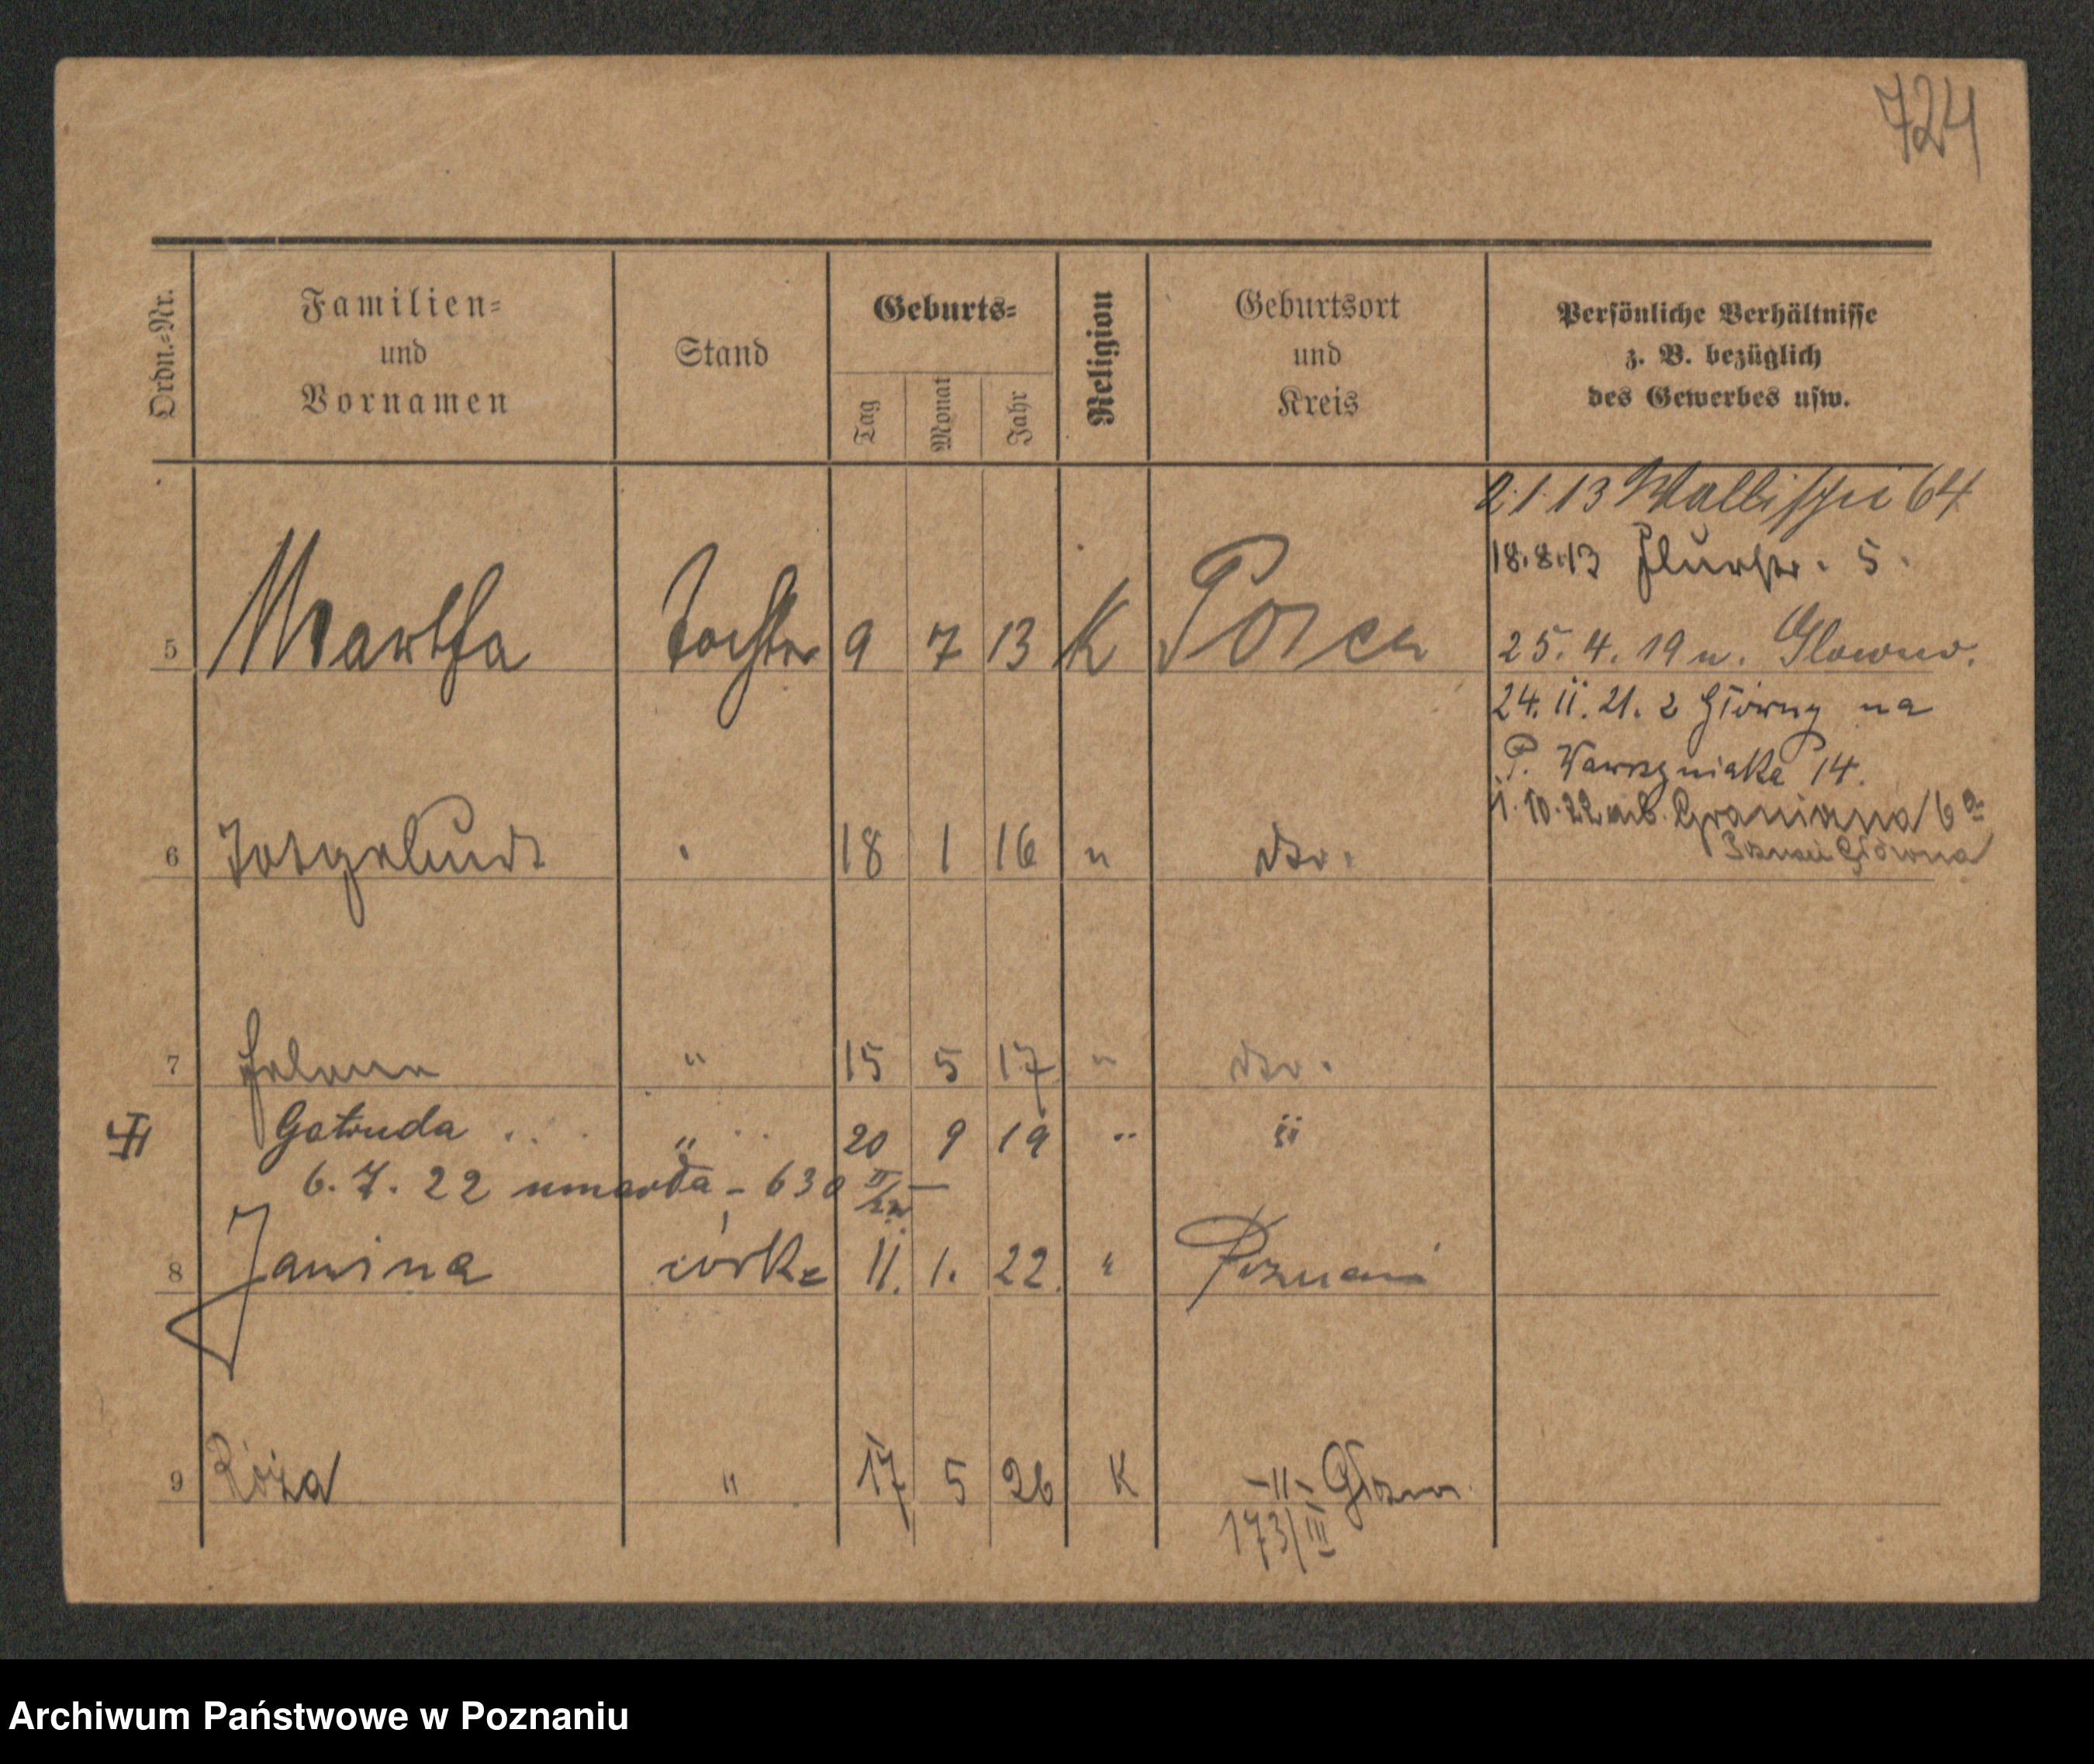 724
Ordn.-Nr.
Familien-
und
Vornamen
Stand
Geburts-
Tag
Monat
Jahr
Religion
Geburtsort
und
Kreis
Persönliche Verhältnisse
z. B. bezüglich
des Gewerbes usw.
2.1.13 Wallischei 64
18.8.13 Flurstr. 5.
5 Martha Tochter 9 7 13 K Posen
25.4.19 n. Glowno.
24.11.21. z Główny na
P. Wawrzyniaka 14.
1.10.22 Graniczna 6a
Poznań Główna
6 18 1 16 " dto.
7 Helena " 15 5 17 " dto.
Getruda " 20 9 19 " "
6.7.22 umarła - 630 II/22
8 Janina córka 11. 1. 22. " Poznań
9 Róża " 17 5 26 K -"- Główn
173/III
Archiwum Państwowe w Poznaniu